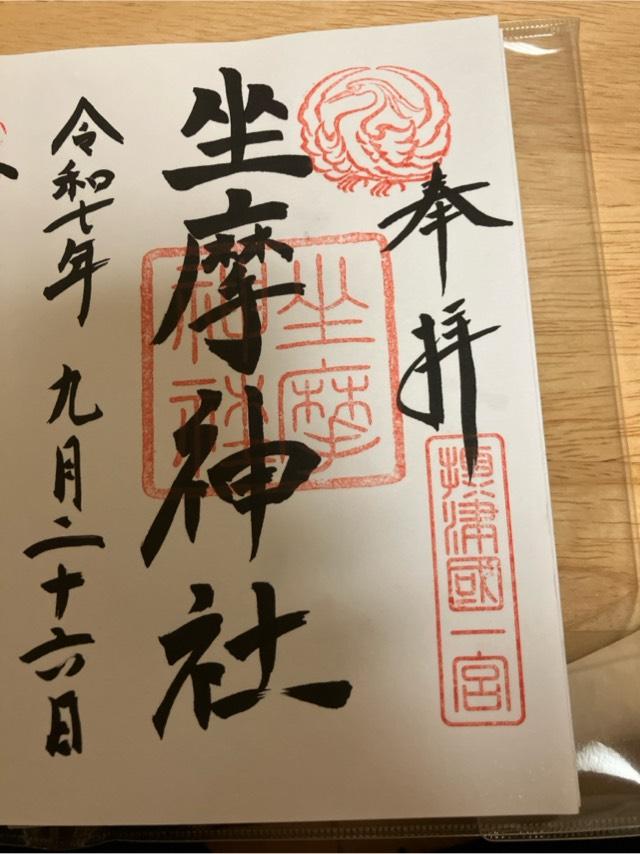 奉拝
摂津國一宮
坐摩神社
坐摩神社
令和七年 九月二十六日